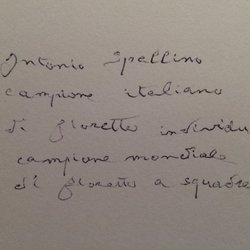 Antonio Spallino
campione italiano
di fioretto individu
campione mondiale
di fioretto a squadre